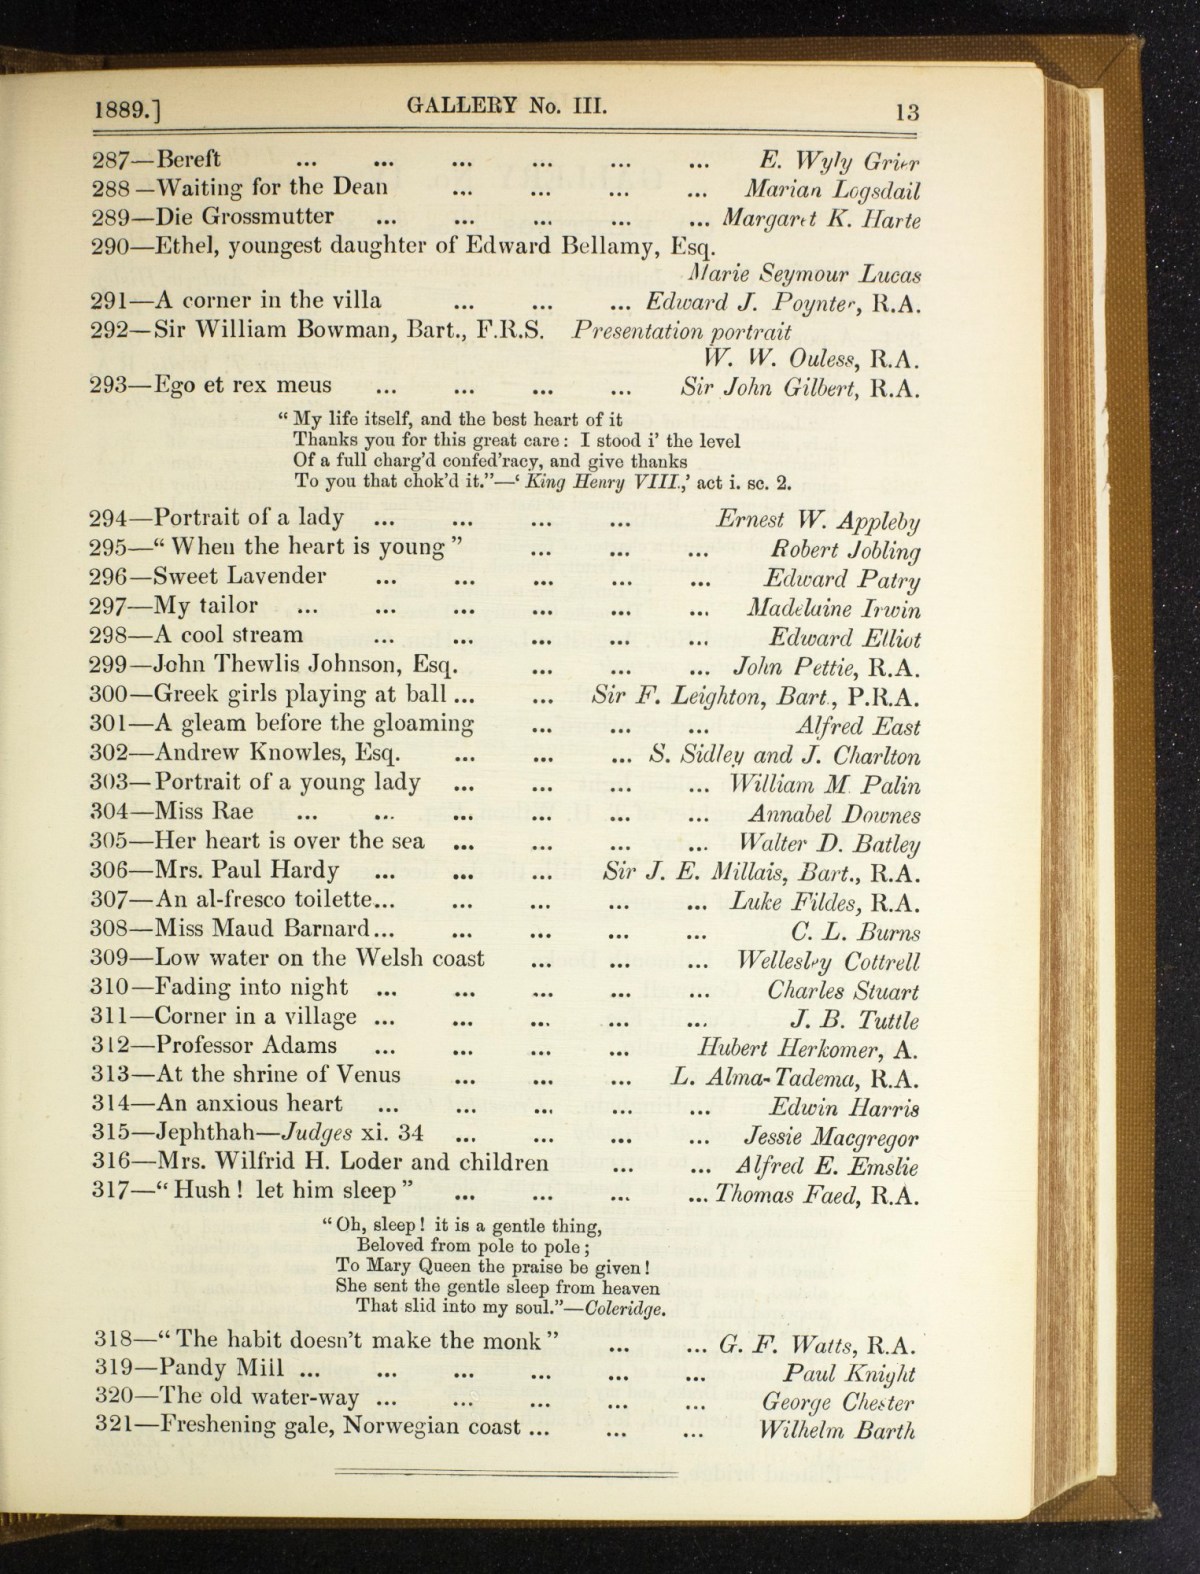 1889.] GALLERY No. III. 13
287—Bereft ... ... ... ... ... ... E. Wyly Grier
288—Waiting for the Dean ... ... ... ... Marian Logsdail
289—Die Grossmutter ... ... ... ... ... Margaret K. Harte
290—Ethel, youngest daughter of Edward Bellamy, Esq.
Marie Seymour Lucas
291—A corner in the villa ... ... ... Edward J. Poynter, R.A.
292—Sir William Bowman, Bart., F.R.S. Presentation portrait
W. W. Ouless, R.A.
293—Ego et rex meus ... ... ... ... Sir John Gilbert, R.A.
“ My life itself, and the best heart of it
Thanks you for this great care : I stood i’ the level
Of a full charg’d confed’racy, and give thanks
To you that chok’d it.”—‘ King Henry VIII.,’ act i. sc. 2.
294—Portrait of a lady ... ... ... ... Ernest W. Appleby
295—“ When the heart is young ” ... ... ... Robert Jobling
296—Sweet Lavender ... ... ... ... ... Edward Patry
297—My tailor ... ... ... ... ... ... Madelaine Irwin
298—A cool stream ... ... ... ... ... Edward Elliot
299—John Thewlis Johnson, Esq. ... ... ... John Pettie, R.A.
300—Greek girls playing at ball ... ... Sir F. Leighton, Bart., P.R.A.
301—A gleam before the gloaming ... ... ... Alfred East
302—Andrew Knowles, Esq. ... ... ... S. Sidley and J. Charlton
303—Portrait of a young lady ... ... ... ... William M. Palin
304—Miss Rae ... ... ... ... ... ... Annabel Downes
305—Her heart is over the sea ... ... ... ... Walter D. Batley
306—Mrs. Paul Hardy ... ... ... Sir J. E. Millais, Bart., R.A.
307—An al-fresco toilette... ... ... ... ... Luke Fildes, R.A.
308—Miss Maud Barnard... ... ... ... ... C. L. Burns
309—Low water on the Welsh coast ... ... ... Wellesley Cottrell
310—Fading into night ... ... ... ... ... Charles Stuart
311—Corner in a village ... ... ... ... ... J. B. Tuttle
312—Professor Adams ... ... ... ... Hubert Herkomer, A.
313—At the shrine of Venus ... ... ... L. Alma-Tadema, R.A.
314—An anxious heart ... ... ... ... ... Edwin Harris
315—Jephthah—Judges xi. 34 ... ... ... ... Jessie Macgregor
316—Mrs. Wilfrid H. Loder and children ... ... Alfred E. Emslie
317—“ Hush ! let him sleep ” ... ... ... ... Thomas Faed, R.A.
“ Oh, sleep ! it is a gentle thing,
Beloved from pole to pole ;
To Mary Queen the praise be given !
She sent the gentle sleep from heaven
That slid into my soul.”—Coleridge.
318—“ The habit doesn’t make the monk ” ... ... G. F. Watts, R.A.
319—Pandy Mill ... ... ... ... ... ... Paul Knight
320—The old water-way ... ... ... ... ... George Chester
321—Freshening gale, Norwegian coast ... ... ... Wilhelm Barth